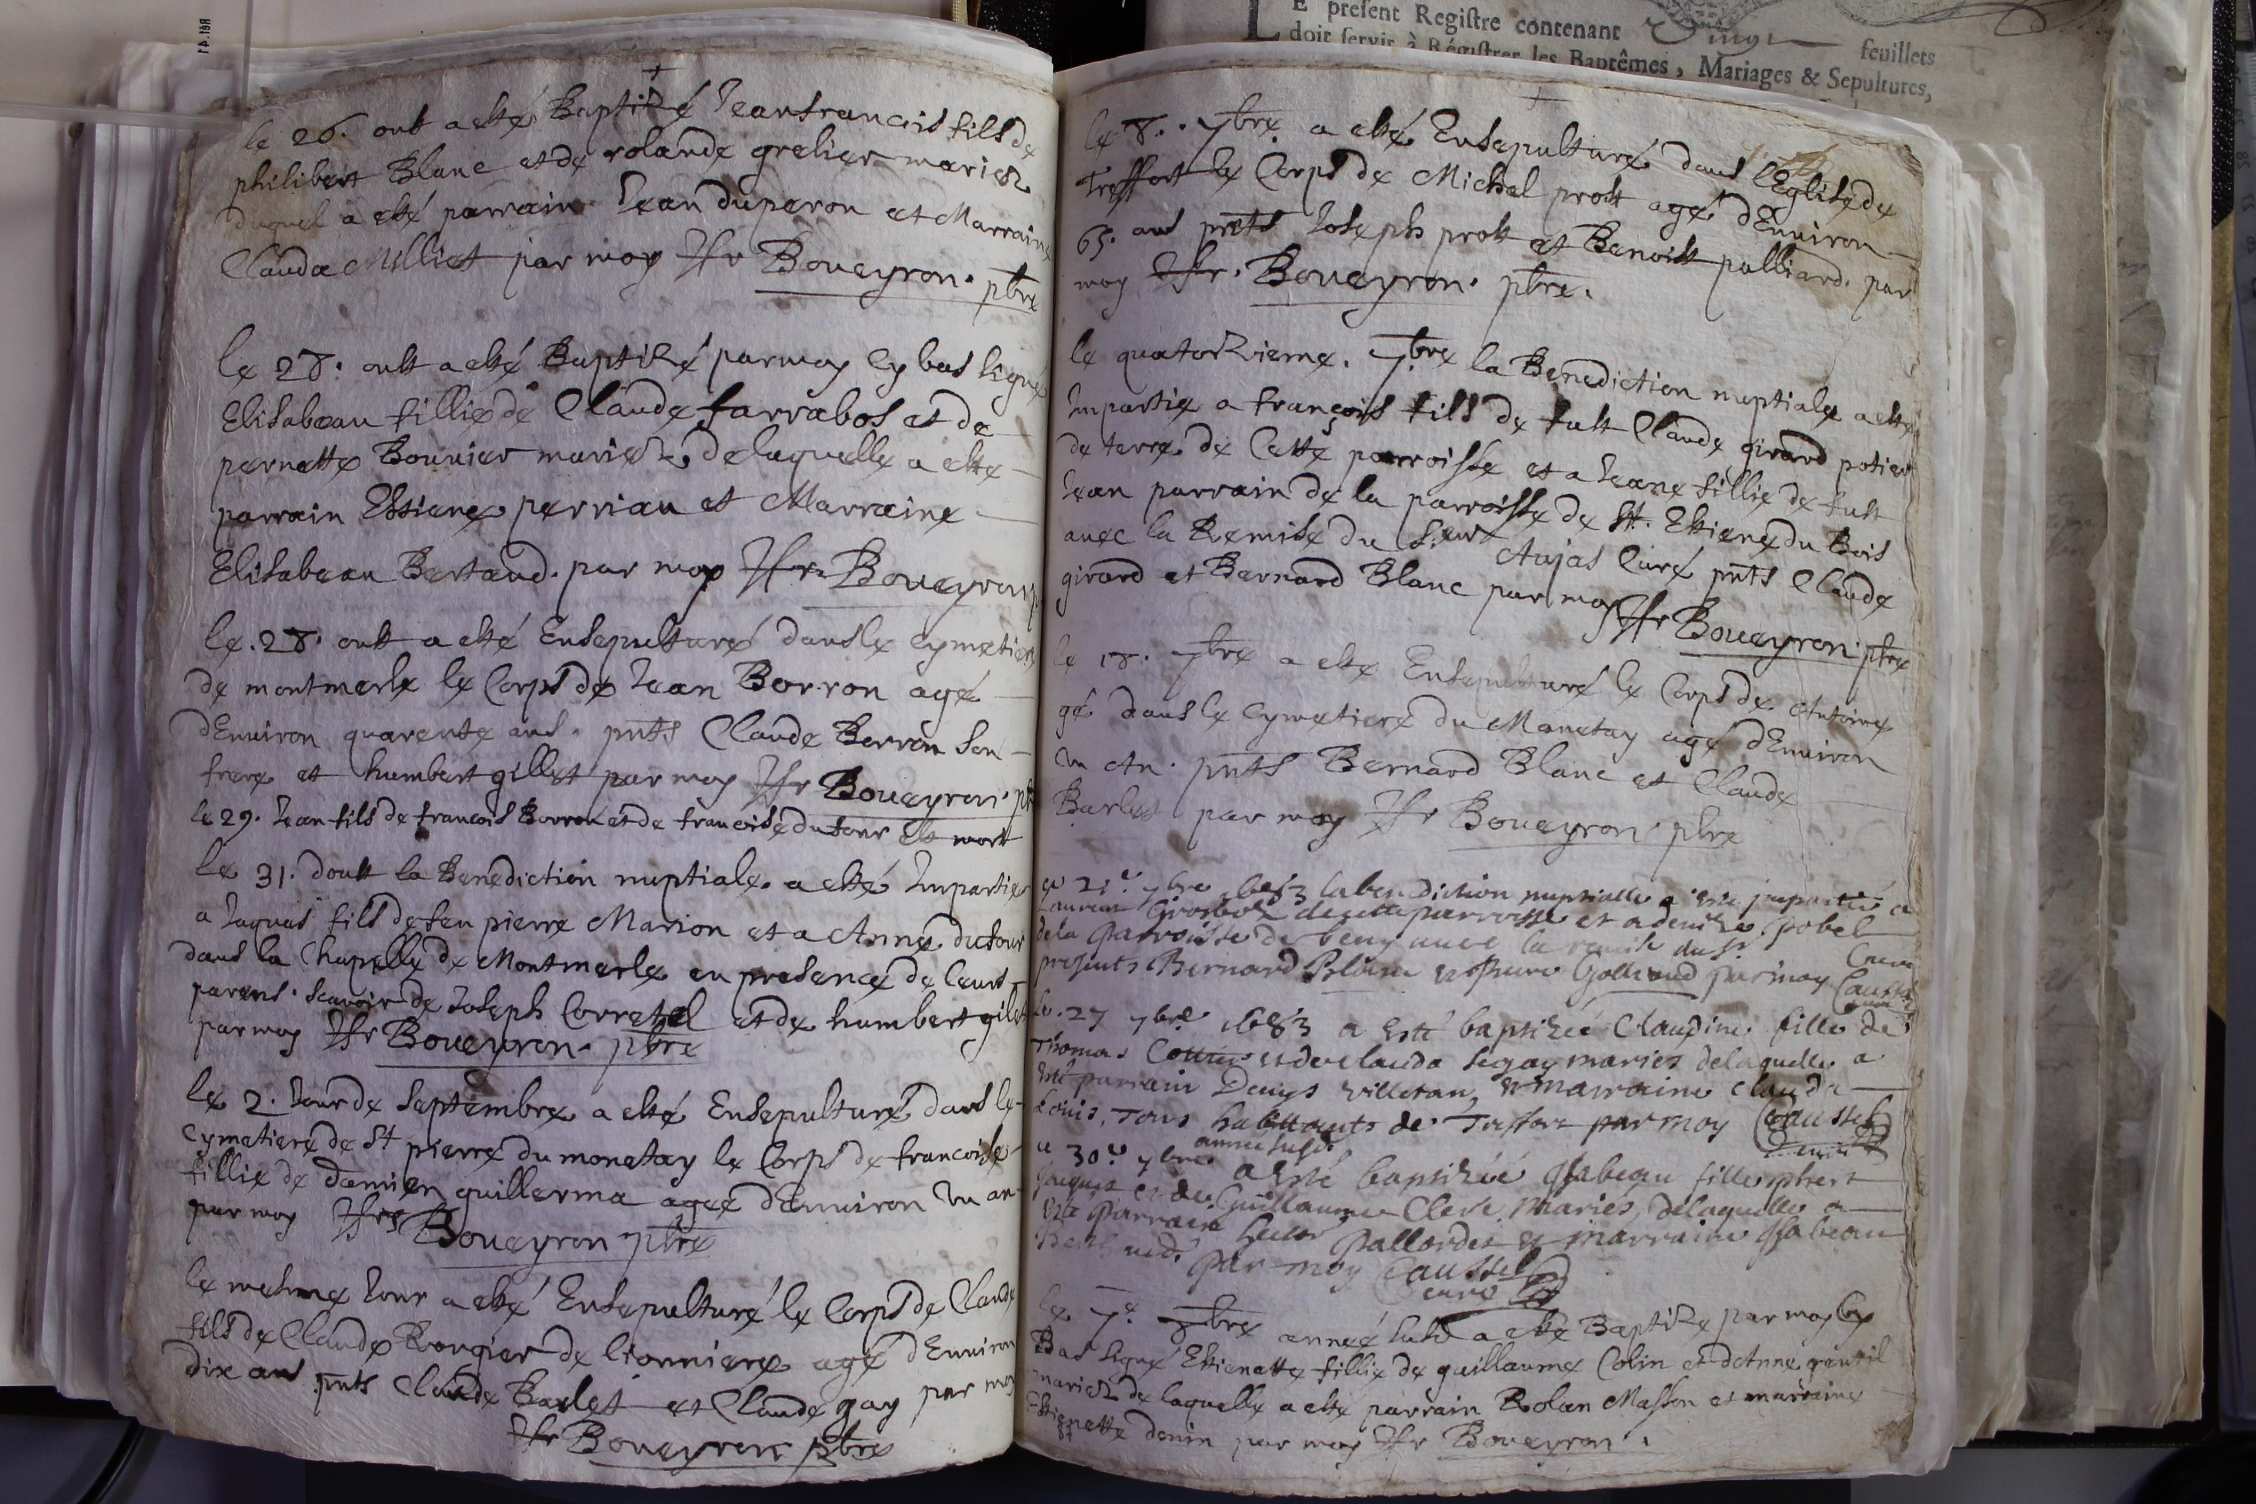 le 26. out a esté Baptizé Jeanfrancois fils de
philibert Blanc et de rolande grelier mariez
duquel a esté parrain Jean duperon et Marraine
Claudæ Milliet par moy Boueyron. pbre
le 28. oust a esté Baptizé par moy cy bas signé
Elisabeau fillie de Claude farrabos et de
pernette Bouuier mariez, de laquelle a esté
parrain Estiene perriau et Marraine
Elisabeau Bertaud. par moy Boueyron p
le. 28. oust a esté Ensepulturé dans le cymetiere
de montmerle le Corps de Jean Borron agé
dEnuiron quarente ans. pnts Claude Borron son
frere et humbert gillet par moy Boueyron. pb
le 29. Jean fils de francois Borron et de francoise dufour est mort
le 31. doust la Benediction nuptiale a esté Impartie
a Jaques fils de feu pierre Marion et a Anne dufour
dans la Chapelle de Montmerle en presence de leurs
parens. scauoir de Joseph Corretel et de humbert gilet
par moy Boueyron. pbre
le 2. Jour de Septembre a esté Ensepulturé dans le
cymetiere de St pierre du monetay le Corps de francoise
fillie de damien guillerma agée dEnuiron Vn an
par moy Boueyron pbre
le mesme Jour a esté Ensepulturé le Corps de Claude
fils de Claude Rongier de lionniere agé dEnuiron
dix ans pnts Claude Barlet et Claude gay par moy
Boueyron pbre
E present Registre contenant feuillets
doit servir à Régistrer les Baptêmes, Mariages & Sepultures,
le 8. 7bre a esté Ensepulturé dans l'Eglise de
Treffort le Corps de Michel prost agé dEnuiron
65. ans pnts Joseph prost et Benoist palliard. par
moy Boueyron. pbre.
le quatorzieme. 7bre la Benediction nuptiale a esté
Impartie a françois fils de fust Claude girard potier
de terre de Cette parroisse et a Jeane fillie de fust
Jean parrain de la parroisse de St. Estiene du Bois
auec la Remise du Sieur Aujas Curé pnts Claude
girard et Bernard Blanc par moy Boueyron. pbre
le 18. 7bre a esté Ensepulturé le Corps de Antoine
gé dans le cymetiere du Monetay agé dEnuiron
Vn An. pnts Bernard Blanc et Claude
Barlet par moy Boueyron pbre
le 21e 7bre 1683 la benediction nuptialle a esté impartie a
Laurent de cette parroisse et a denize pobel
de la parroisse de avec la remise du Sr Curé
presents Bernard Blanc et Golliaud par moy Caussel
le. 27 7bre 1683 a esté baptizée Claudine fille de
Thomas et de clauda segay mariez de laquelle a
esté parrain Denys villetan et marraine clauda
Louis. Tous habittants de Treffort par moy Caussel
curé
le 30e 7bre annee susd. a esté baptizéé Isabeau fille
Jaques et de Guillaume Clere mariés, de laquelle a
esté parrain Pallordet et marraine Isabeau
par moy Caussel
curé
le 7e 8bre année susd a esté Baptizé par moy Cy
Bas signé Estienette fillie de guillaume Colin et dAnne gentil
mariez de laquelle a esté parrain Rolan Masson et marraine
Estienette donin par moy Boueyron.